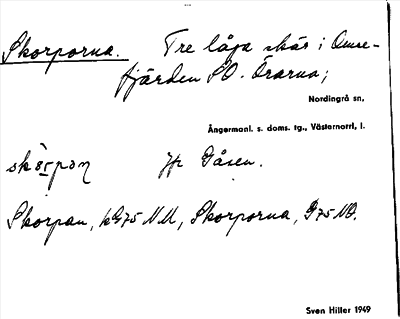 Skorporna. Tre låga skär i Omne-
fjärden SO. Örarna;
Nordingrå sn,
Ångermanl. s. doms. tg., Västernorrl, l.
skɔrpon Jfr Gåsen.
Skorpan, kG75 NM, Skorporna, G75 NO.
Sven Hiller 1949